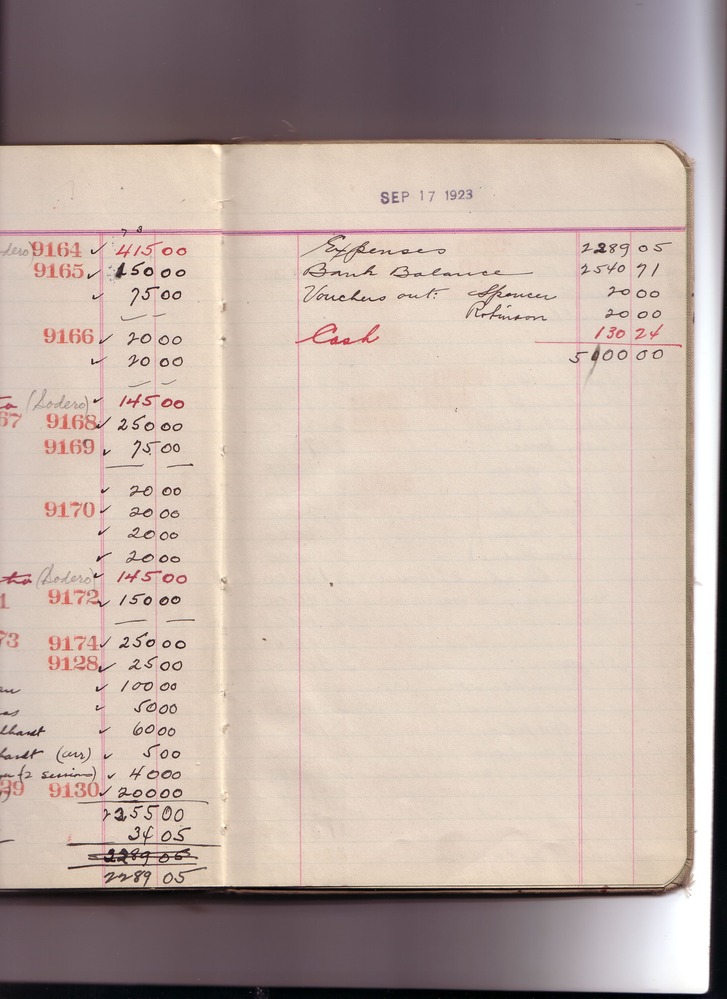 SEP 17 1923
9164 ✓ 415 00
9165 ✓ 150 00
✓ 75 00
9166 ✓ 20 00
✓ 20 00
(Sodero) ✓ 145 00
67 9168 ✓ 250 00
9169 ✓ 75 00
✓ 20 00
9170 ✓ 20 00
✓ 20 00
✓ 20 00
(Sodero) ✓ 145 00
1 9172 ✓ 150 00
73 9174 ✓ 250 00
9128 ✓ 25 00
✓ 100 00
✓ 50 00
✓ 60 00
hardt (arr) ✓ 5 00
(2 sessions) ✓ 40 00
29 9130 ✓ 200 00
2255 00
34 05
2289 05
2289 05
Expenses 2289 05
Bank Balance 2540 71
Vouchers out: Spencer 20 00
Robinson 20 00
Cash 130 24
5000 00